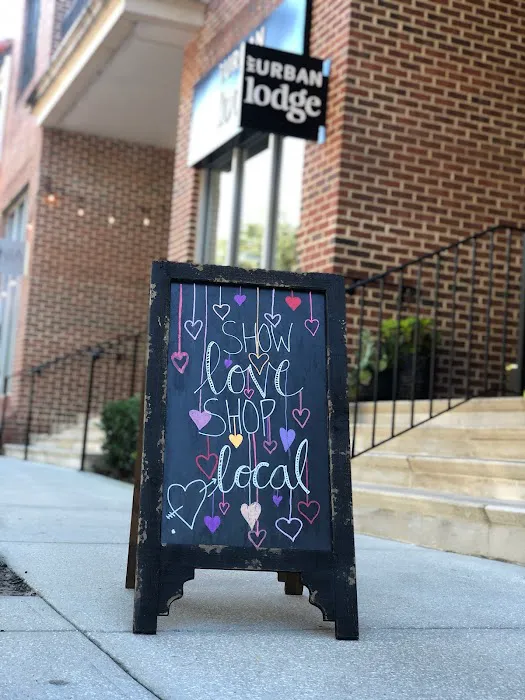 URBAN
lodge
SHOW
love
SHOP
local